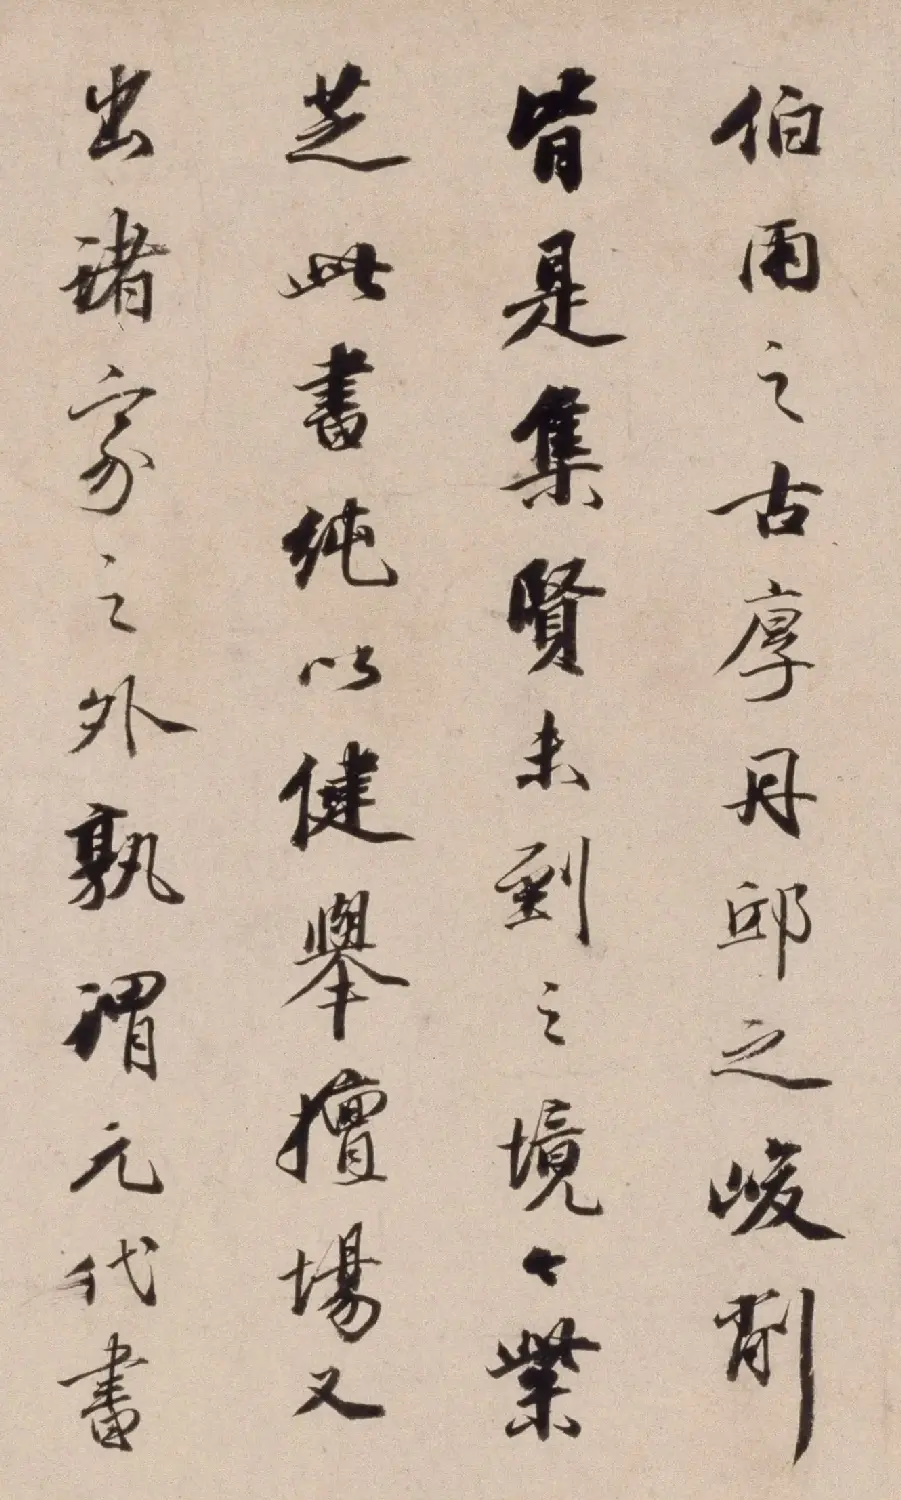 伯雨之古厚丹邱之峻削
皆是集賢未到之境々紫
芝此書純以健舉擅場又
出諸家之外孰謂元代書